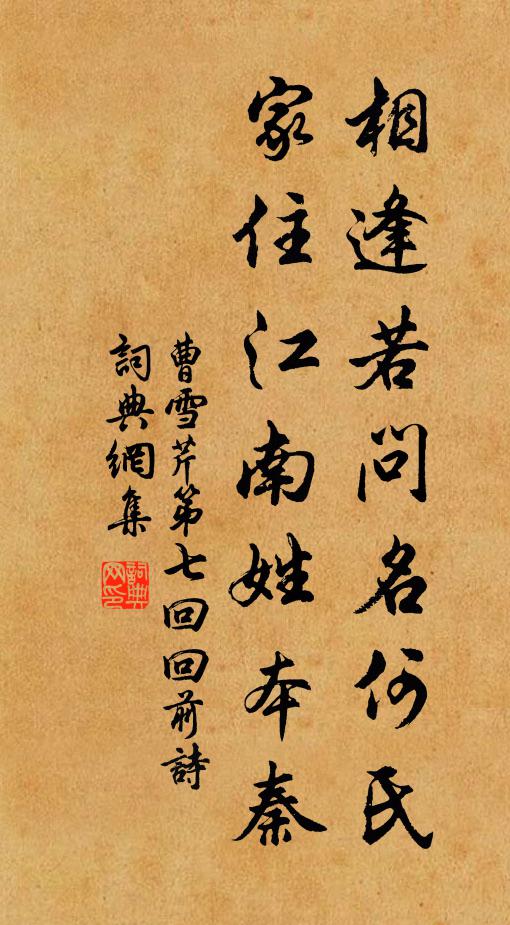 相逢若问名何氏
家住江南姓本秦
曹雪芹第七回回前詩
詞典網集
詞典網印